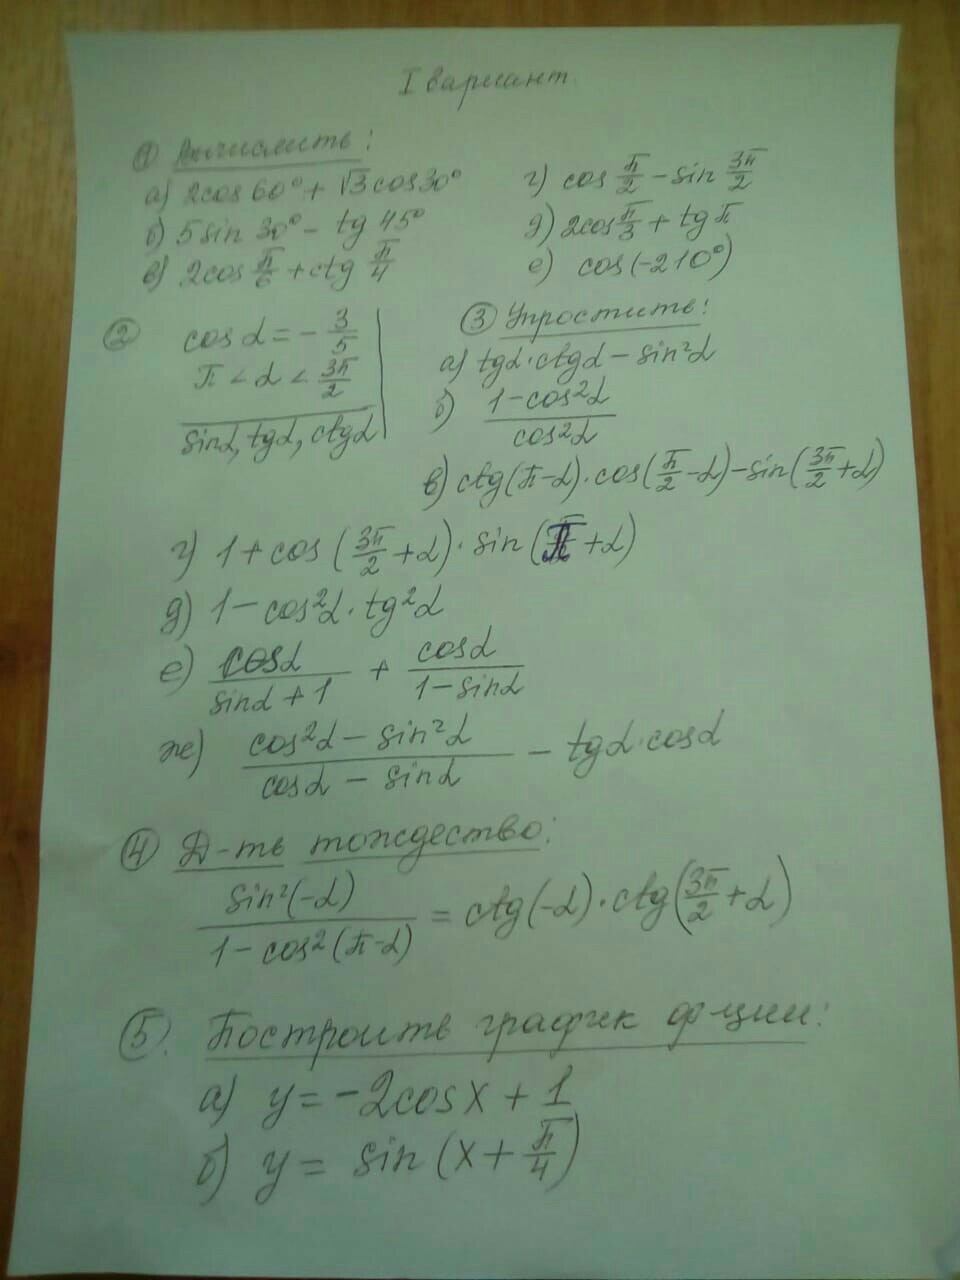 I вариант.
① Вычислить:
а) 2cos 60° + √3 cos 30°
б) 5 sin 30° - tg 45°
в) 2cos π/6 + ctg π/4
г) cos π/2 - sin 3π/2
д) 2cos π/3 + tg π
е) cos(-210°)
② cos α = - 3/5
π < α < 3π/2
sin α, tg α, ctg α
③ Упростить:
а) tg α · ctg α - sin²α
б) (1 - cos²α)/(cos²α)
в) ctg(π-α) · cos(π/2 - α) - sin(3π/2 + α)
г) 1 + cos(3π/2 + α) · sin(π + α)
д) 1 - cos²α · tg²α
е) cos α/(sin α + 1) + cos α/(1 - sin α)
ж) (cos²α - sin²α)/(cos α - sin α) - tg α · cos α
④ Д-ть тождество:
sin²(-α)/(1 - cos²(π-α)) = ctg(-α) · ctg(3π/2 + α)
⑤. Построить график ф-ции:
а) y = -2cos x + 1
б) y = sin (x + π/4)